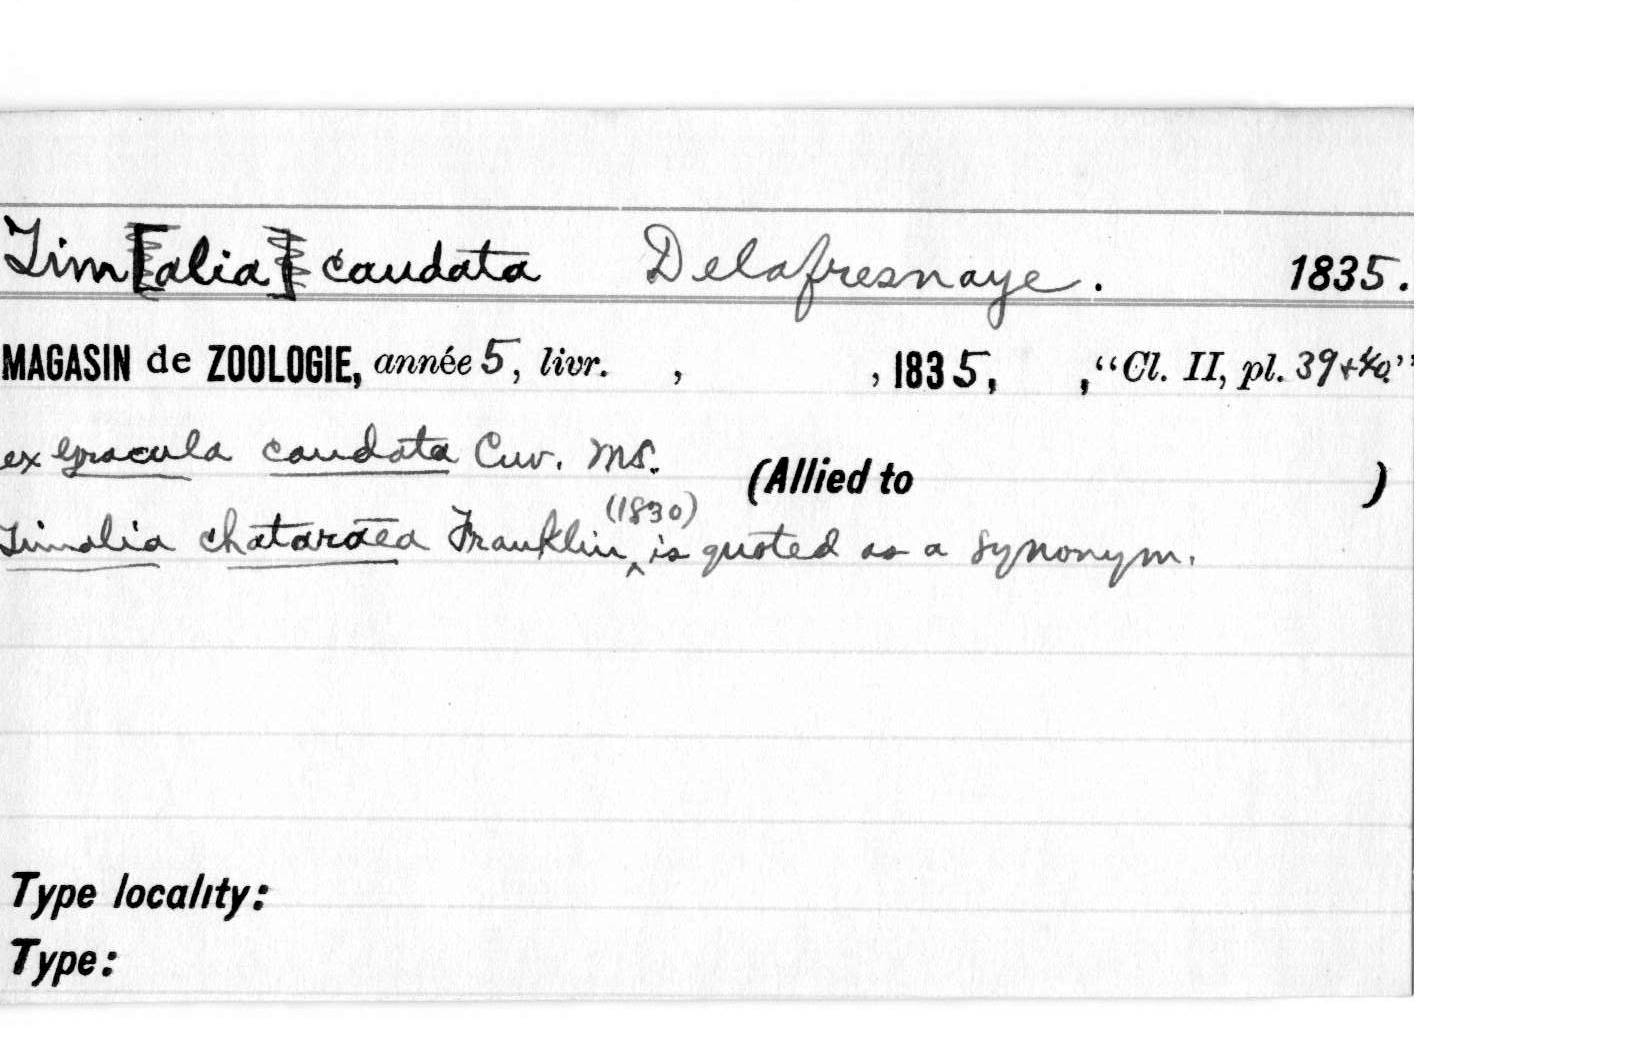 Tim[alia] caudata Delafresnaye. 1835.
MAGASIN de ZOOLOGIE, année 5, livr. , , 1835, , "Cl. II, pl. 39+40."
ex Gracula caudata Cuv. MS. (Allied to )
Timalia chataræa Franklin (1830) is quoted as a synonym.
Type locality:
Type: